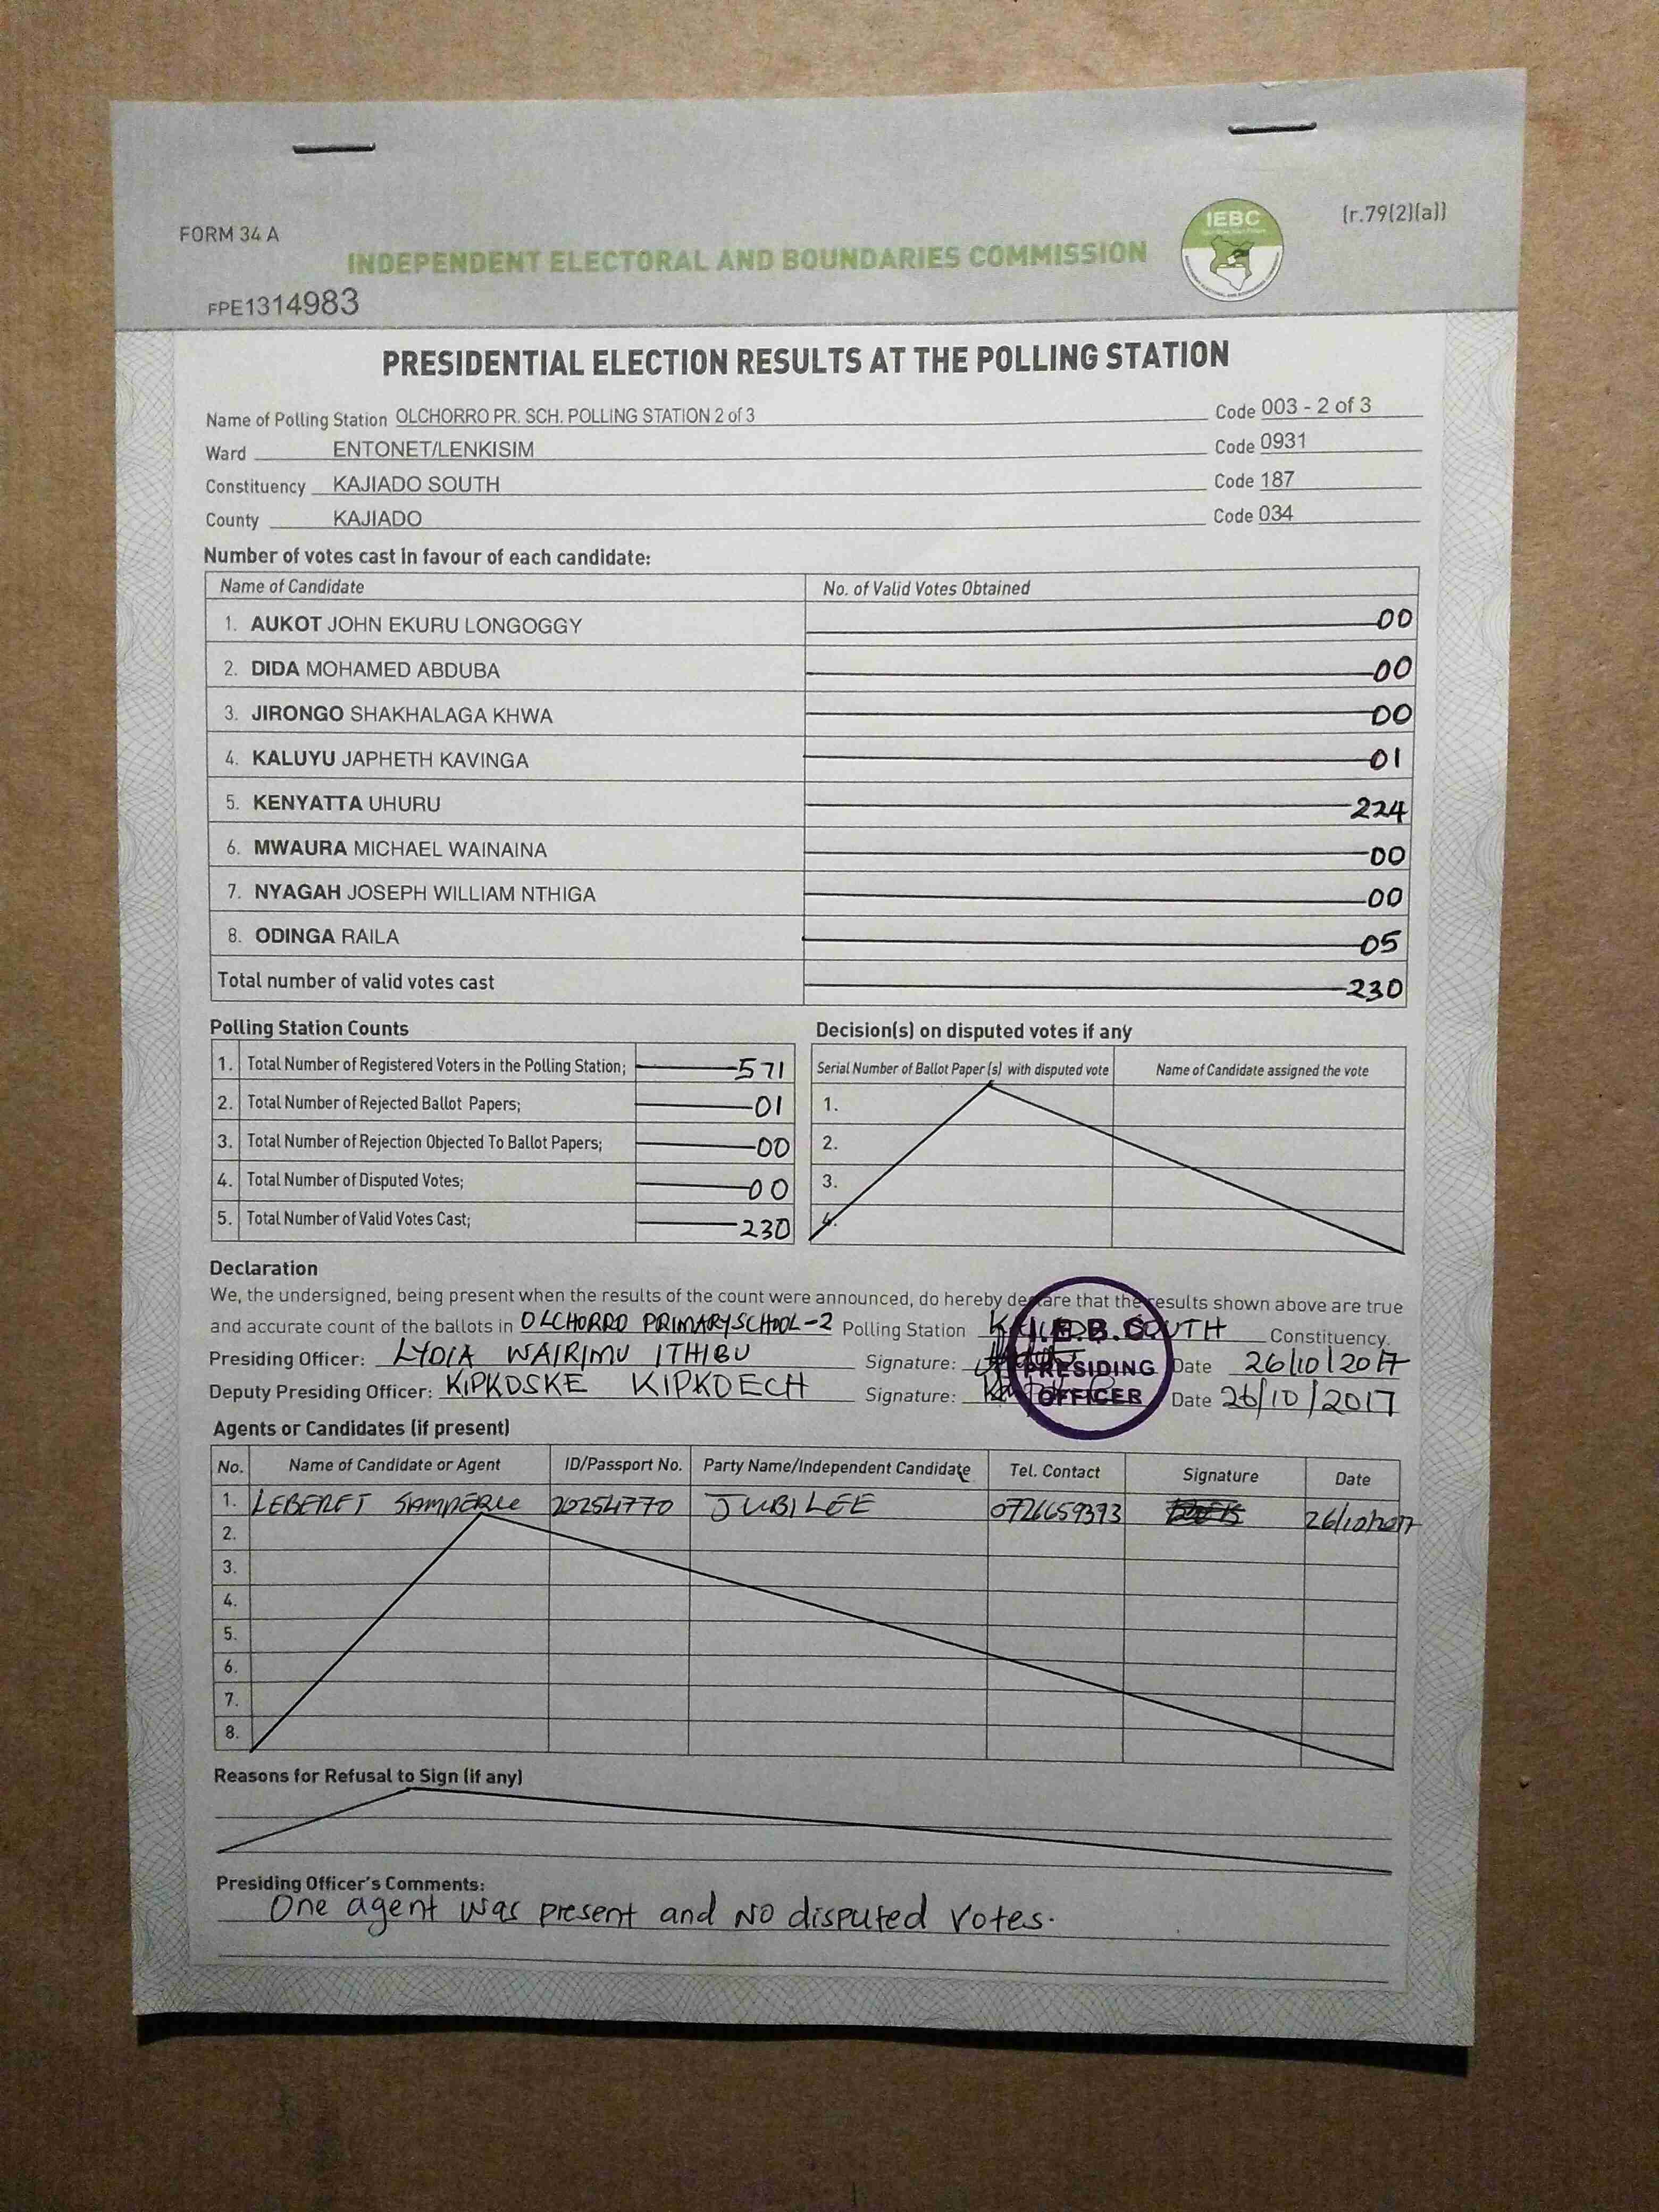 FORM 34 A
(r.79(2)(a))
IEBC
INDEPENDENT ELECTORAL AND BOUNDARIES COMMISSION
FPE1314983
PRESIDENTIAL ELECTION RESULTS AT THE POLLING STATION
Name of Polling Station OLCHORRO PR. SCH. POLLING STATION 2 of 3 Code 003 - 2 of 3
Ward ENTONET/LENKISIM Code 0931
Constituency KAJIADO SOUTH Code 187
County KAJIADO Code 034
Number of votes cast in favour of each candidate:
Name of Candidate No. of Valid Votes Obtained
1. AUKOT JOHN EKURU LONGOGGY 00
2. DIDA MOHAMED ABDUBA 00
3. JIRONGO SHAKHALAGA KHWA 00
4. KALUYU JAPHETH KAVINGA 01
5. KENYATTA UHURU 224
6. MWAURA MICHAEL WAINAINA 00
7. NYAGAH JOSEPH WILLIAM NTHIGA 00
8. ODINGA RAILA 05
Total number of valid votes cast 230
Polling Station Counts
1. Total Number of Registered Voters in the Polling Station; 571
2. Total Number of Rejected Ballot Papers; 01
3. Total Number of Rejection Objected To Ballot Papers; 00
4. Total Number of Disputed Votes; 00
5. Total Number of Valid Votes Cast; 230
Decision(s) on disputed votes if any
Serial Number of Ballot Paper (s) with disputed vote Name of Candidate assigned the vote
1.
2.
3.
4.
Declaration
We, the undersigned, being present when the results of the count were announced, do hereby declare that the results shown above are true
and accurate count of the ballots in OLCHORRO PRIMARY SCHOOL-2 Polling Station KAJIADO SOUTH Constituency.
Presiding Officer: LYDIA WAIRIMU ITHIBU Signature: Date 26/10/2017
Deputy Presiding Officer: KIPKOSKE KIPKOECH Signature: Date 26/10/2017
I.E.B.C
PRESIDING
OFFICER
Agents or Candidates (if present)
No. Name of Candidate or Agent ID/Passport No. Party Name/Independent Candidate Tel. Contact Signature Date
1. 20254770 JUBILEE 0726659393 26/10/2017
2.
3.
4.
5.
6.
7.
8.
Reasons for Refusal to Sign (if any)
Presiding Officer's Comments:
One agent was present and NO disputed votes.